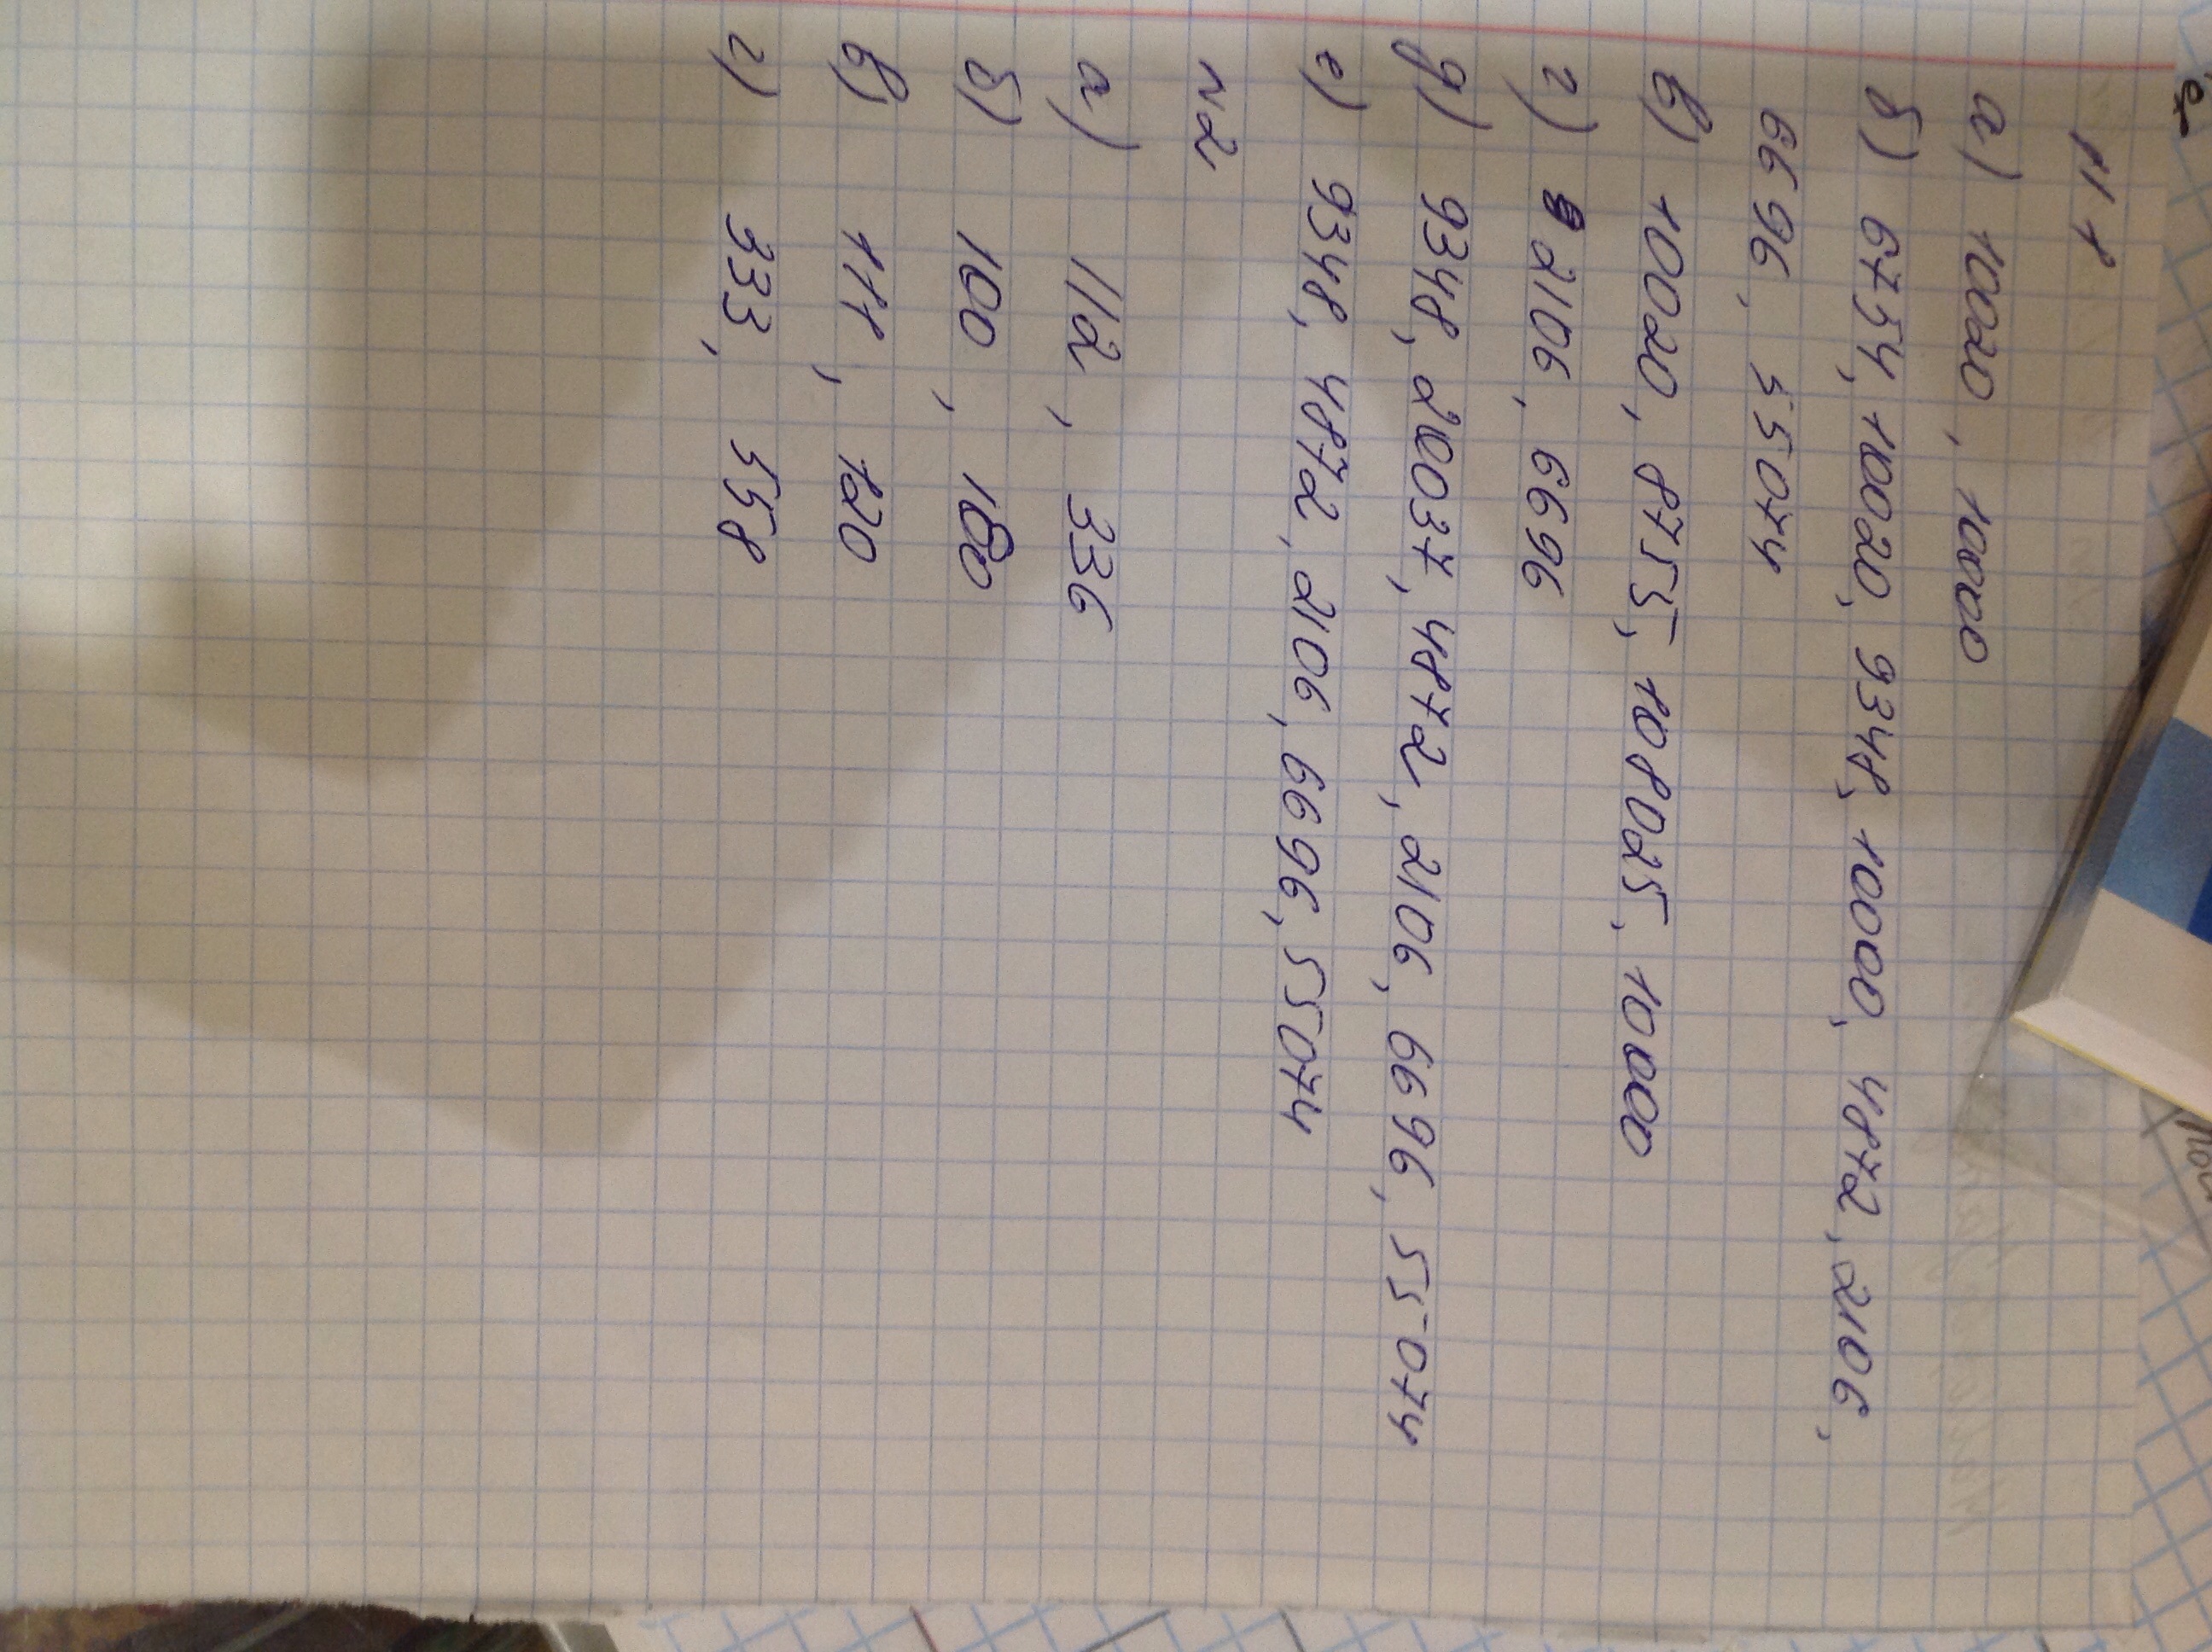 N 1
а) 10020, 10000
б) 6754, 10020, 9348, 10000, 4872, 2106,
6696, 55074
в) 10020, 8755, 108025, 10000
г) 2106, 6696
д) 9348, 20037, 4872, 2106, 6696, 55074
е) 9348, 4872, 2106, 6696, 55074
N2
а) 112, 336
б) 100, 180
в) 111, 120
г) 333, 558